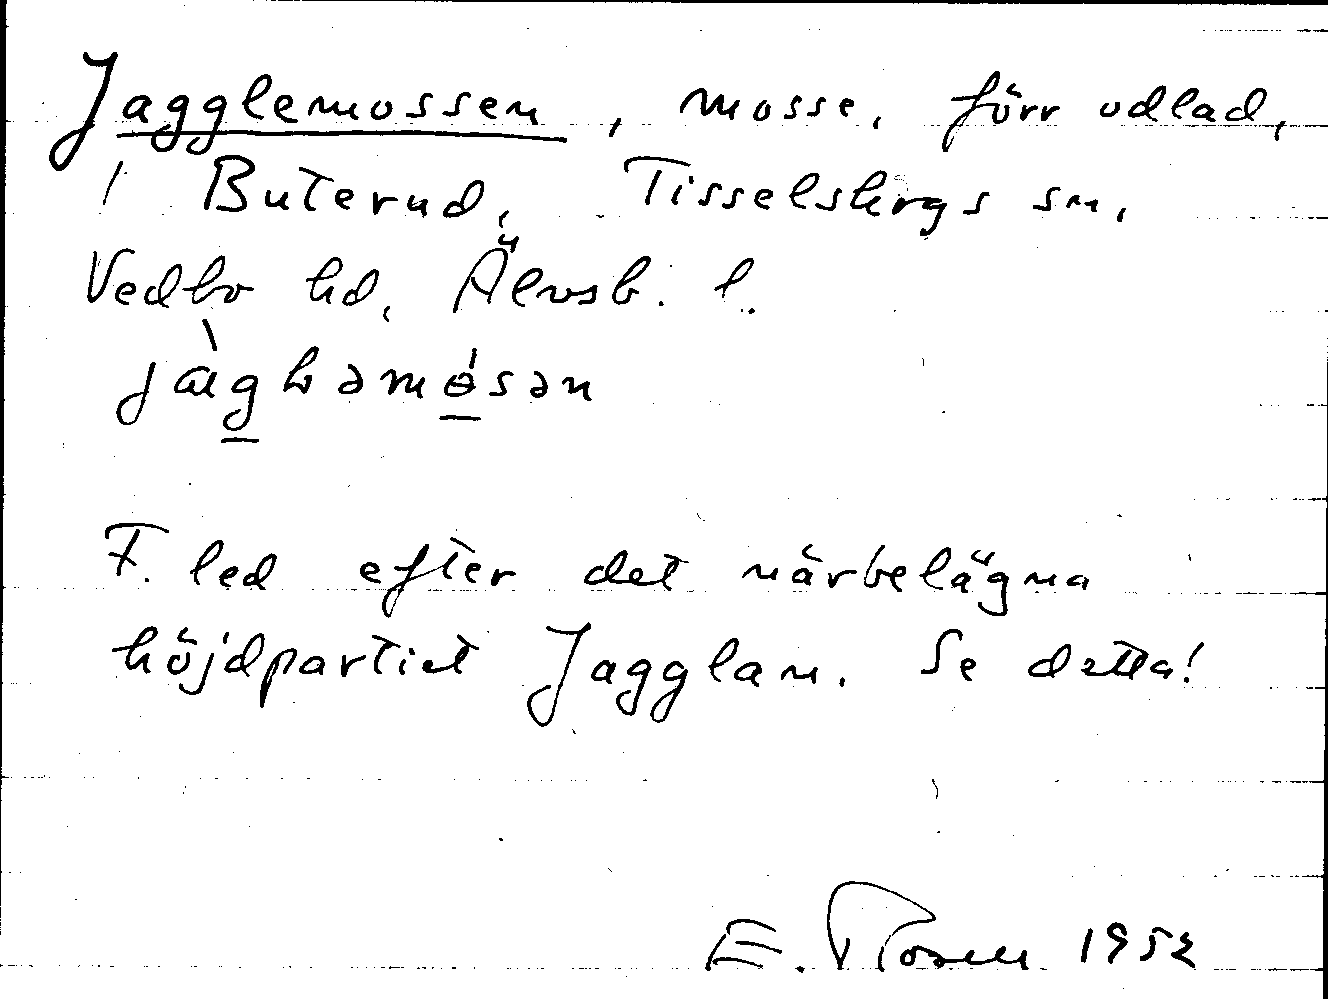 Jagglemossen, mosse, förr odlad,
i Buterud, Tisselskogs sn,
Vedbo hd, Älvsb. l.
F. led efter det närbelägna
höjdpartiet Jagglan. Se detta!
E. Rosell 1952